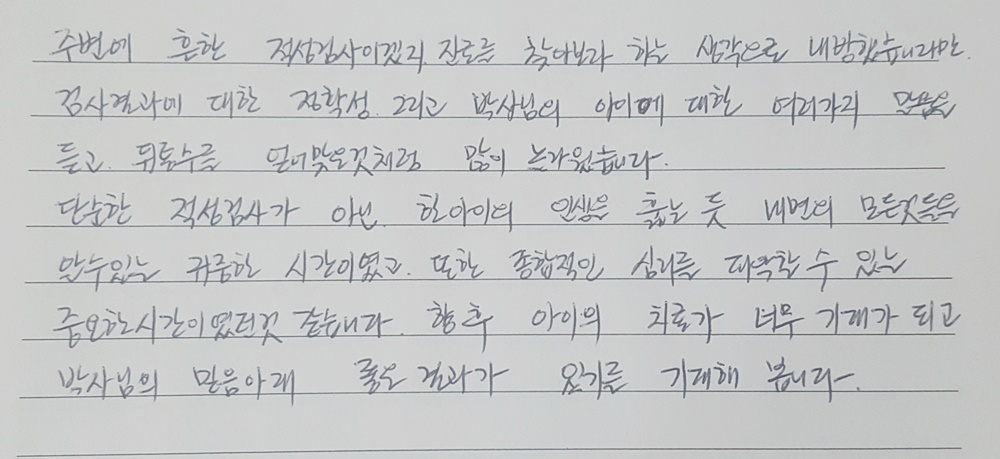 주변에 흔한 적성검사이겠지, 진로를 찾아보라 하는 생각으로 내방했습니다만.
검사결과에 대한 정확성. 그리고 박사님의 아이에 대한 여러가지 말씀을
듣고. 뒤통수를 얻어맞은것처럼 많이 놀라웠습니다.
단순한 적성검사가 아닌. 한아이의 인생을 훑는 듯 내면의 모든것들을
알수있는 귀중한 시간이였고. 또한 종합적인 심리를 파악할 수 있는
중요한시간이였던것 같습니다. 향후 아이의 치료가 너무 기대가 되고
박사님의 믿음아래 좋은 결과가 있기를 기대해 봅니다.